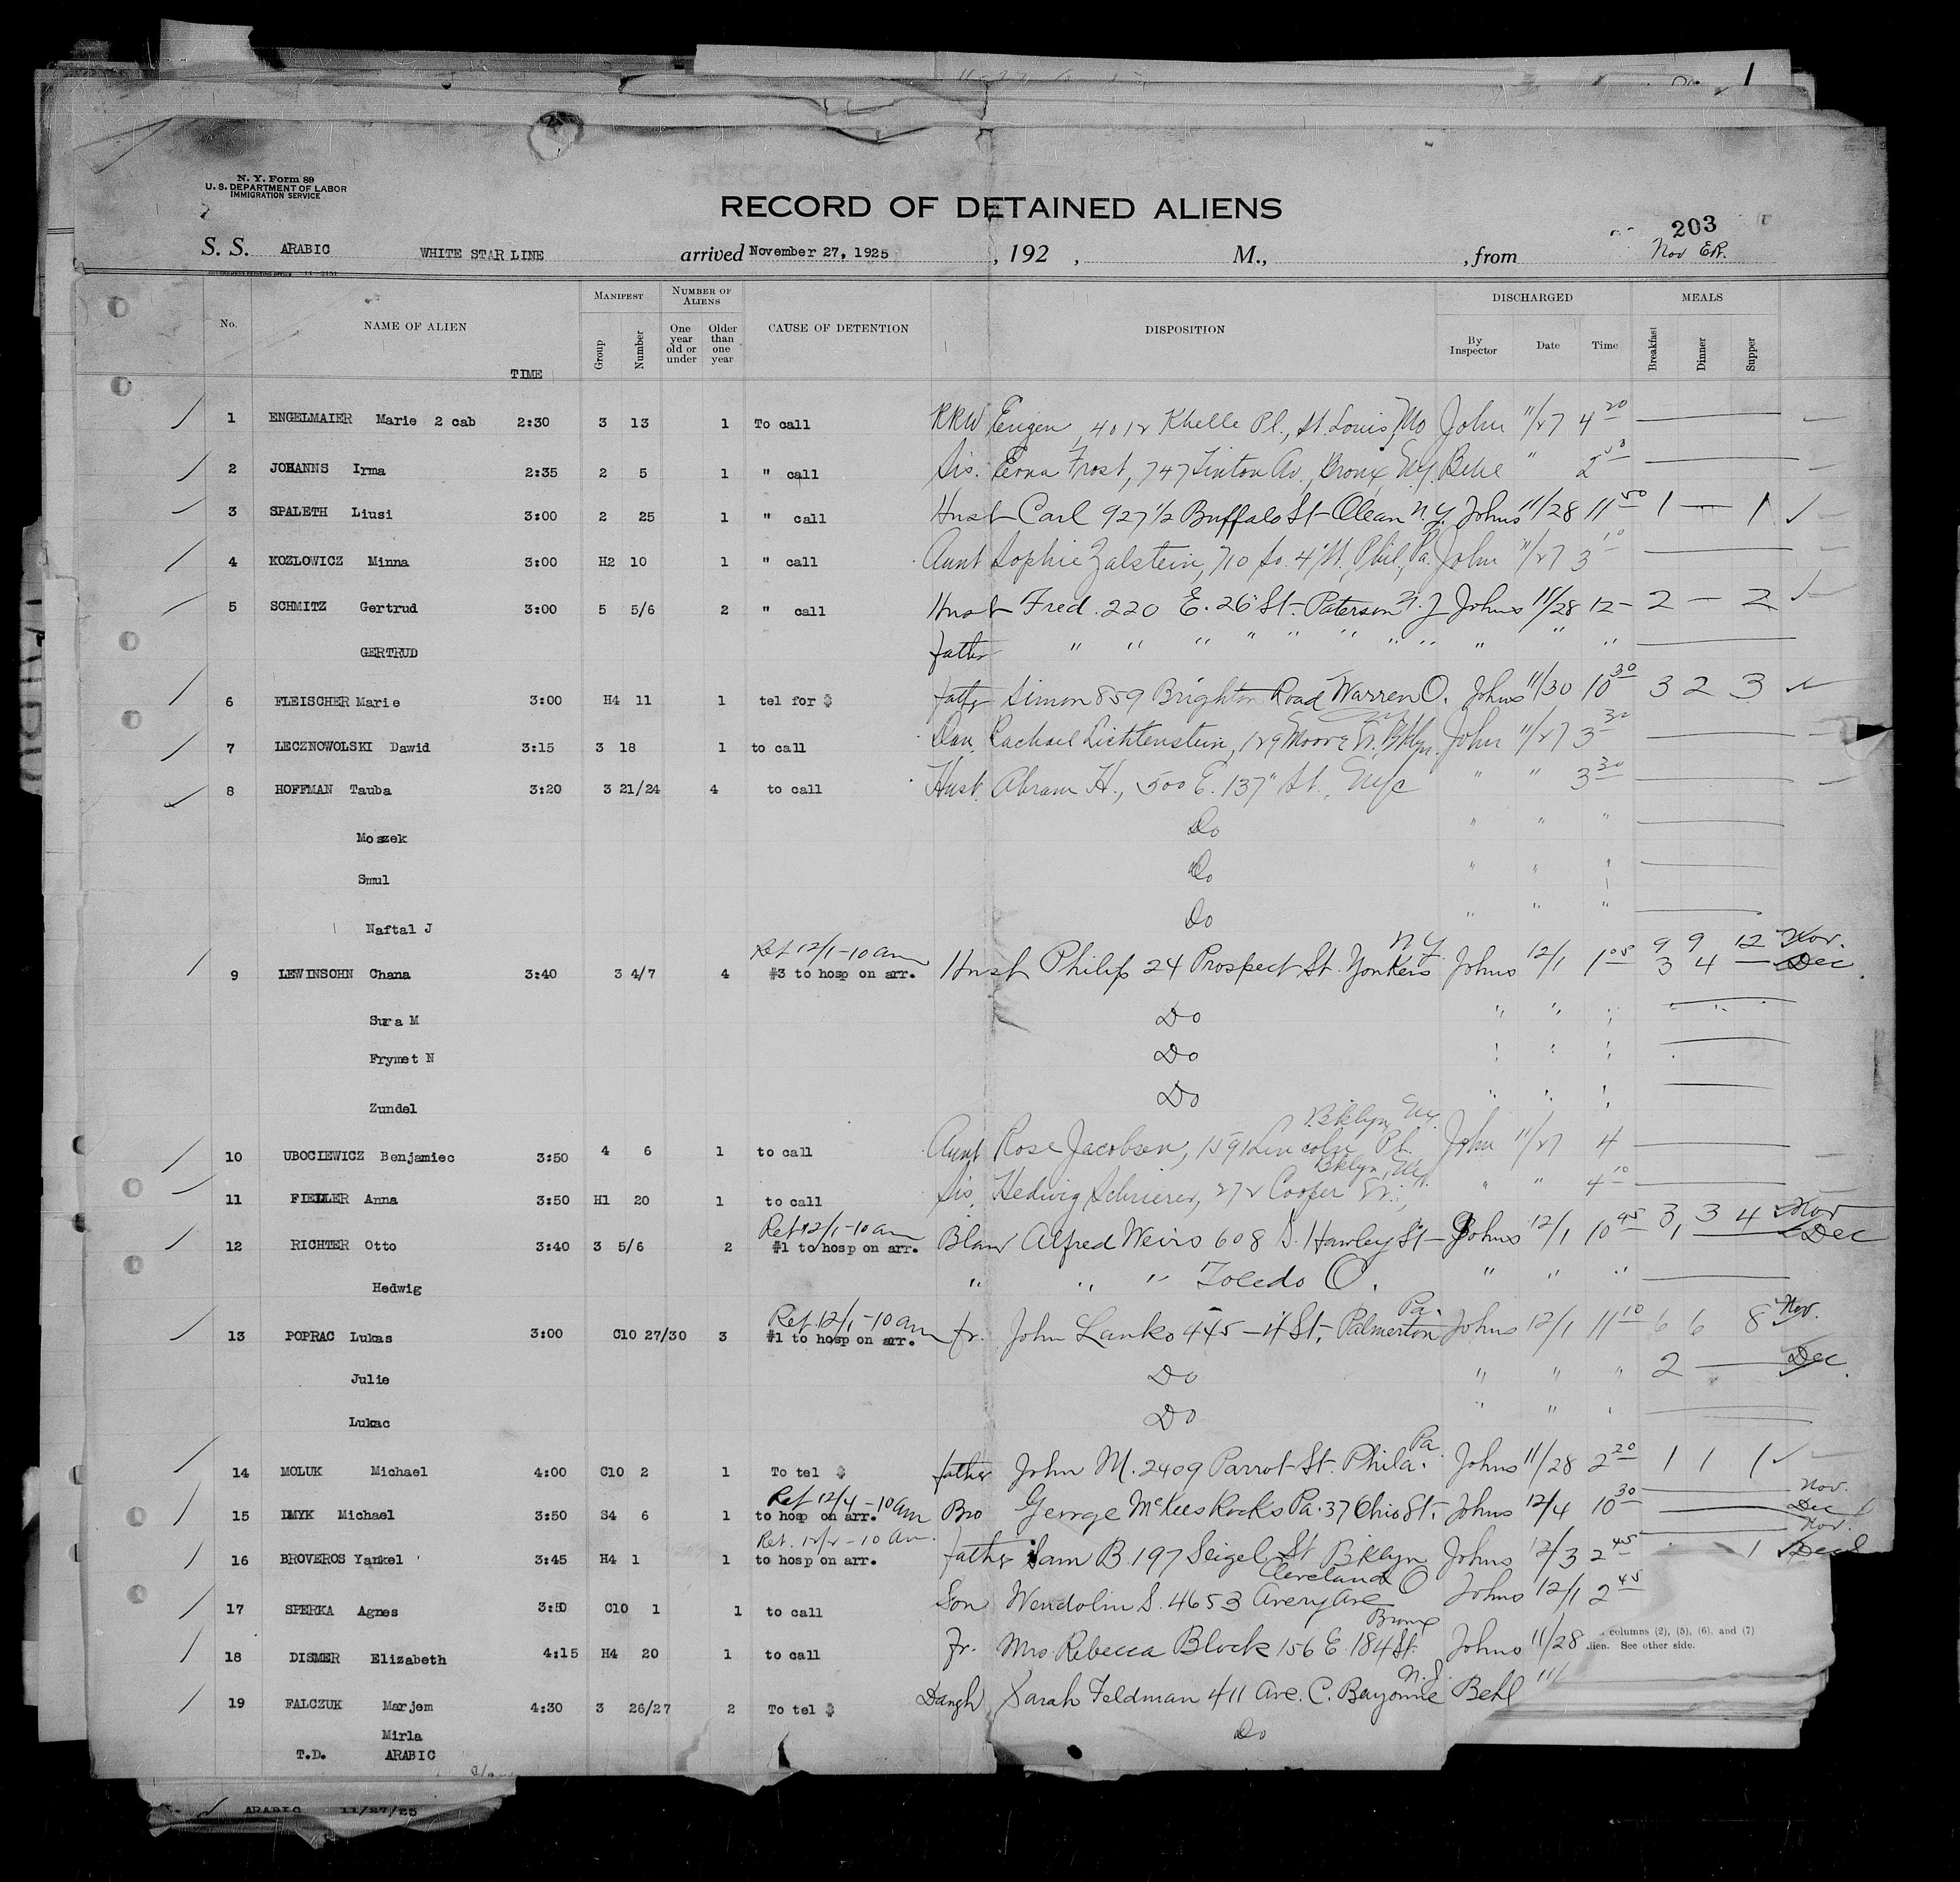 N. Y. Form 89
U. S. DEPARTMENT OF LABOR
IMMIGRATION SERVICE
RECORD OF DETAINED ALIENS
203
Nov ER.
S. S. ARABIC WHITE STAR LINE arrived November 27, 1925 , 192 , M., , from
No. NAME OF ALIEN TIME MANIFEST Group Number NUMBER OF ALIENS One year old or under Older than one year CAUSE OF DETENTION DISPOSITION DISCHARGED By Inspector Date Time MEALS Breakfast Dinner Supper
1 ENGELMAIER Marie 2 cab 2:30 3 13 1 To call Eugen, 401 Pl., St. Louis, Mo John 11/27 4 20
2 JOHANNS Irma 2:35 2 5 1 " call Sis. Erna Frost, 747 Tinton Av., Bronx, NY. "
3 SPALETH Liusi 3:00 2 25 1 " call Husb Carl 927 1/2 Buffalo St Olean N.Y. Johns 11/28 11 50 1 — 1
4 KOZLOWICZ Minna 3:00 H2 10 1 " call Aunt Sophie Zalstein, 710 So. 4" St, Phil, Pa. John 11/27 3 10
5 SCHMITZ Gertrud 3:00 5 5/6 2 " call Husb Fred. 220 E. 26" St- Paterson N.J Johns 11/28 12 - 2 — 2
GERTRUD father " " " " " " " " " " "
6 FLEISCHER Marie 3:00 H4 11 1 tel for $ father Simon 859 Brighton Road Warren O. Johns 11/30 10 30 3 2 3
7 LECZNOWOLSKI Dawid 3:15 3 18 1 to call Dau. Rachael Lichtenstein, 129 Moore St. Bklyn. John 11/27 3 30
8 HOFFMAN Tauba 3:20 3 21/24 4 to call Husb. Abram H., 500 E. 137" St., NYC " " 3 30
Moszek Do " " "
Smul Do " " "
Naftal J Do " " "
Ret 12/1-10 am N.Y. 9 9 12 Nov.
9 LEWINSOHN Chana 3:40 3 4/7 4 #3 to hosp on arr. Husb Philip 24 Prospect St. Yonkers Johns 12/1 1 05 3 4 — Dec
Sura M Do " " "
Frymet N Do " " "
Zundel Do " " "
Bklyn NY.
10 UBOCIEWICZ Benjamiec 3:50 4 6 1 to call Aunt Rose Jacobsen, 1591 Lincoln Pl. John 11/27 4
Bklyn, NY.
11 FIEDLER Anna 3:50 H1 20 1 to call Sis. Hedwig Schrierer, 272 Cooper St., " " 4 10
Ret 12/1-10 am 3 3 4 Nov
12 RICHTER Otto 3:40 3 5/6 2 #1 to hosp on arr. Alfred Weirs 608 S. Hawley St- Johns 12/1 10 45 1 — Dec
Hedwig " " " Toledo O. " " "
Ret. 12/1-10 am Pa. Nov.
13 POPRAC Lukas 3:00 C10 27/30 3 #1 to hosp on arr. fr. John Lanko 445 - 4 St, Palmerton Johns 12/1 11 10 6 6 8
Julie Do " " " 2 — Dec
Lukac Do " " "
Pa
14 MOLUK Michael 4:00 C10 2 1 To tel $ father John M. 2409 Parrot St. Phila. Johns 11/28 2 20 1 1 1
Ret 12/4-10 am Nov.
15 DMYK Michael 3:50 S4 6 1 to hosp on arr. Bro George McKees Rocks Pa. 37 Ohio St. Johns 12/4 10 30 Dec
Ret. 12/2-10 am. Nov.
16 BROVEROS Yankel 3:45 H4 1 1 to hosp on arr. father Sam B. 197 Seigel St Bklyn Johns 12/3 2 45 1 Dec
Cleveland O
17 SPERKA Agnes 3:50 C10 1 1 to call Son Wendolin S. 4653 Avery Ave Johns 12/1 2 45
Bronx
18 DISMER Elizabeth 4:15 H4 20 1 to call Fr. Mrs. Rebecca Block 156 E. 184 St. Johns 11/28
columns (2), (5), (6), and (7)
lien. See other side.
N.J.
19 FALCZUK Marjem 4:30 3 26/27 2 To tel $ Daugh Sarah Feldman 411 Ave. C. Bayonne Behl 11/
Mirla Do
T.D. ARABIC
ARABIC 11/27/25